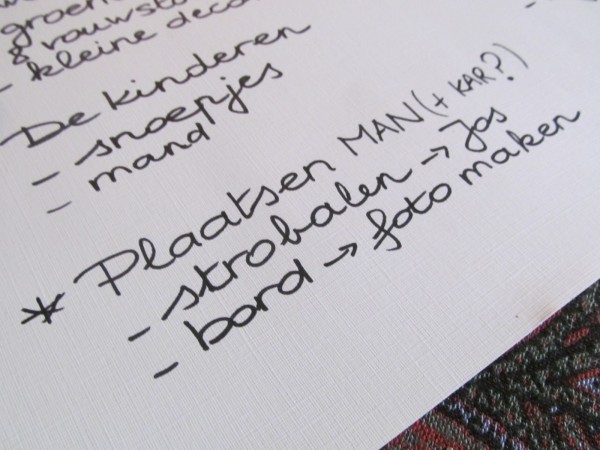 groen
& rouwstu
- kleine deco
De kinderen
- snoepjes
- mand
* Plaatsen MAN (+ KAR?)
- strobalen → Jos
- bord → foto maken